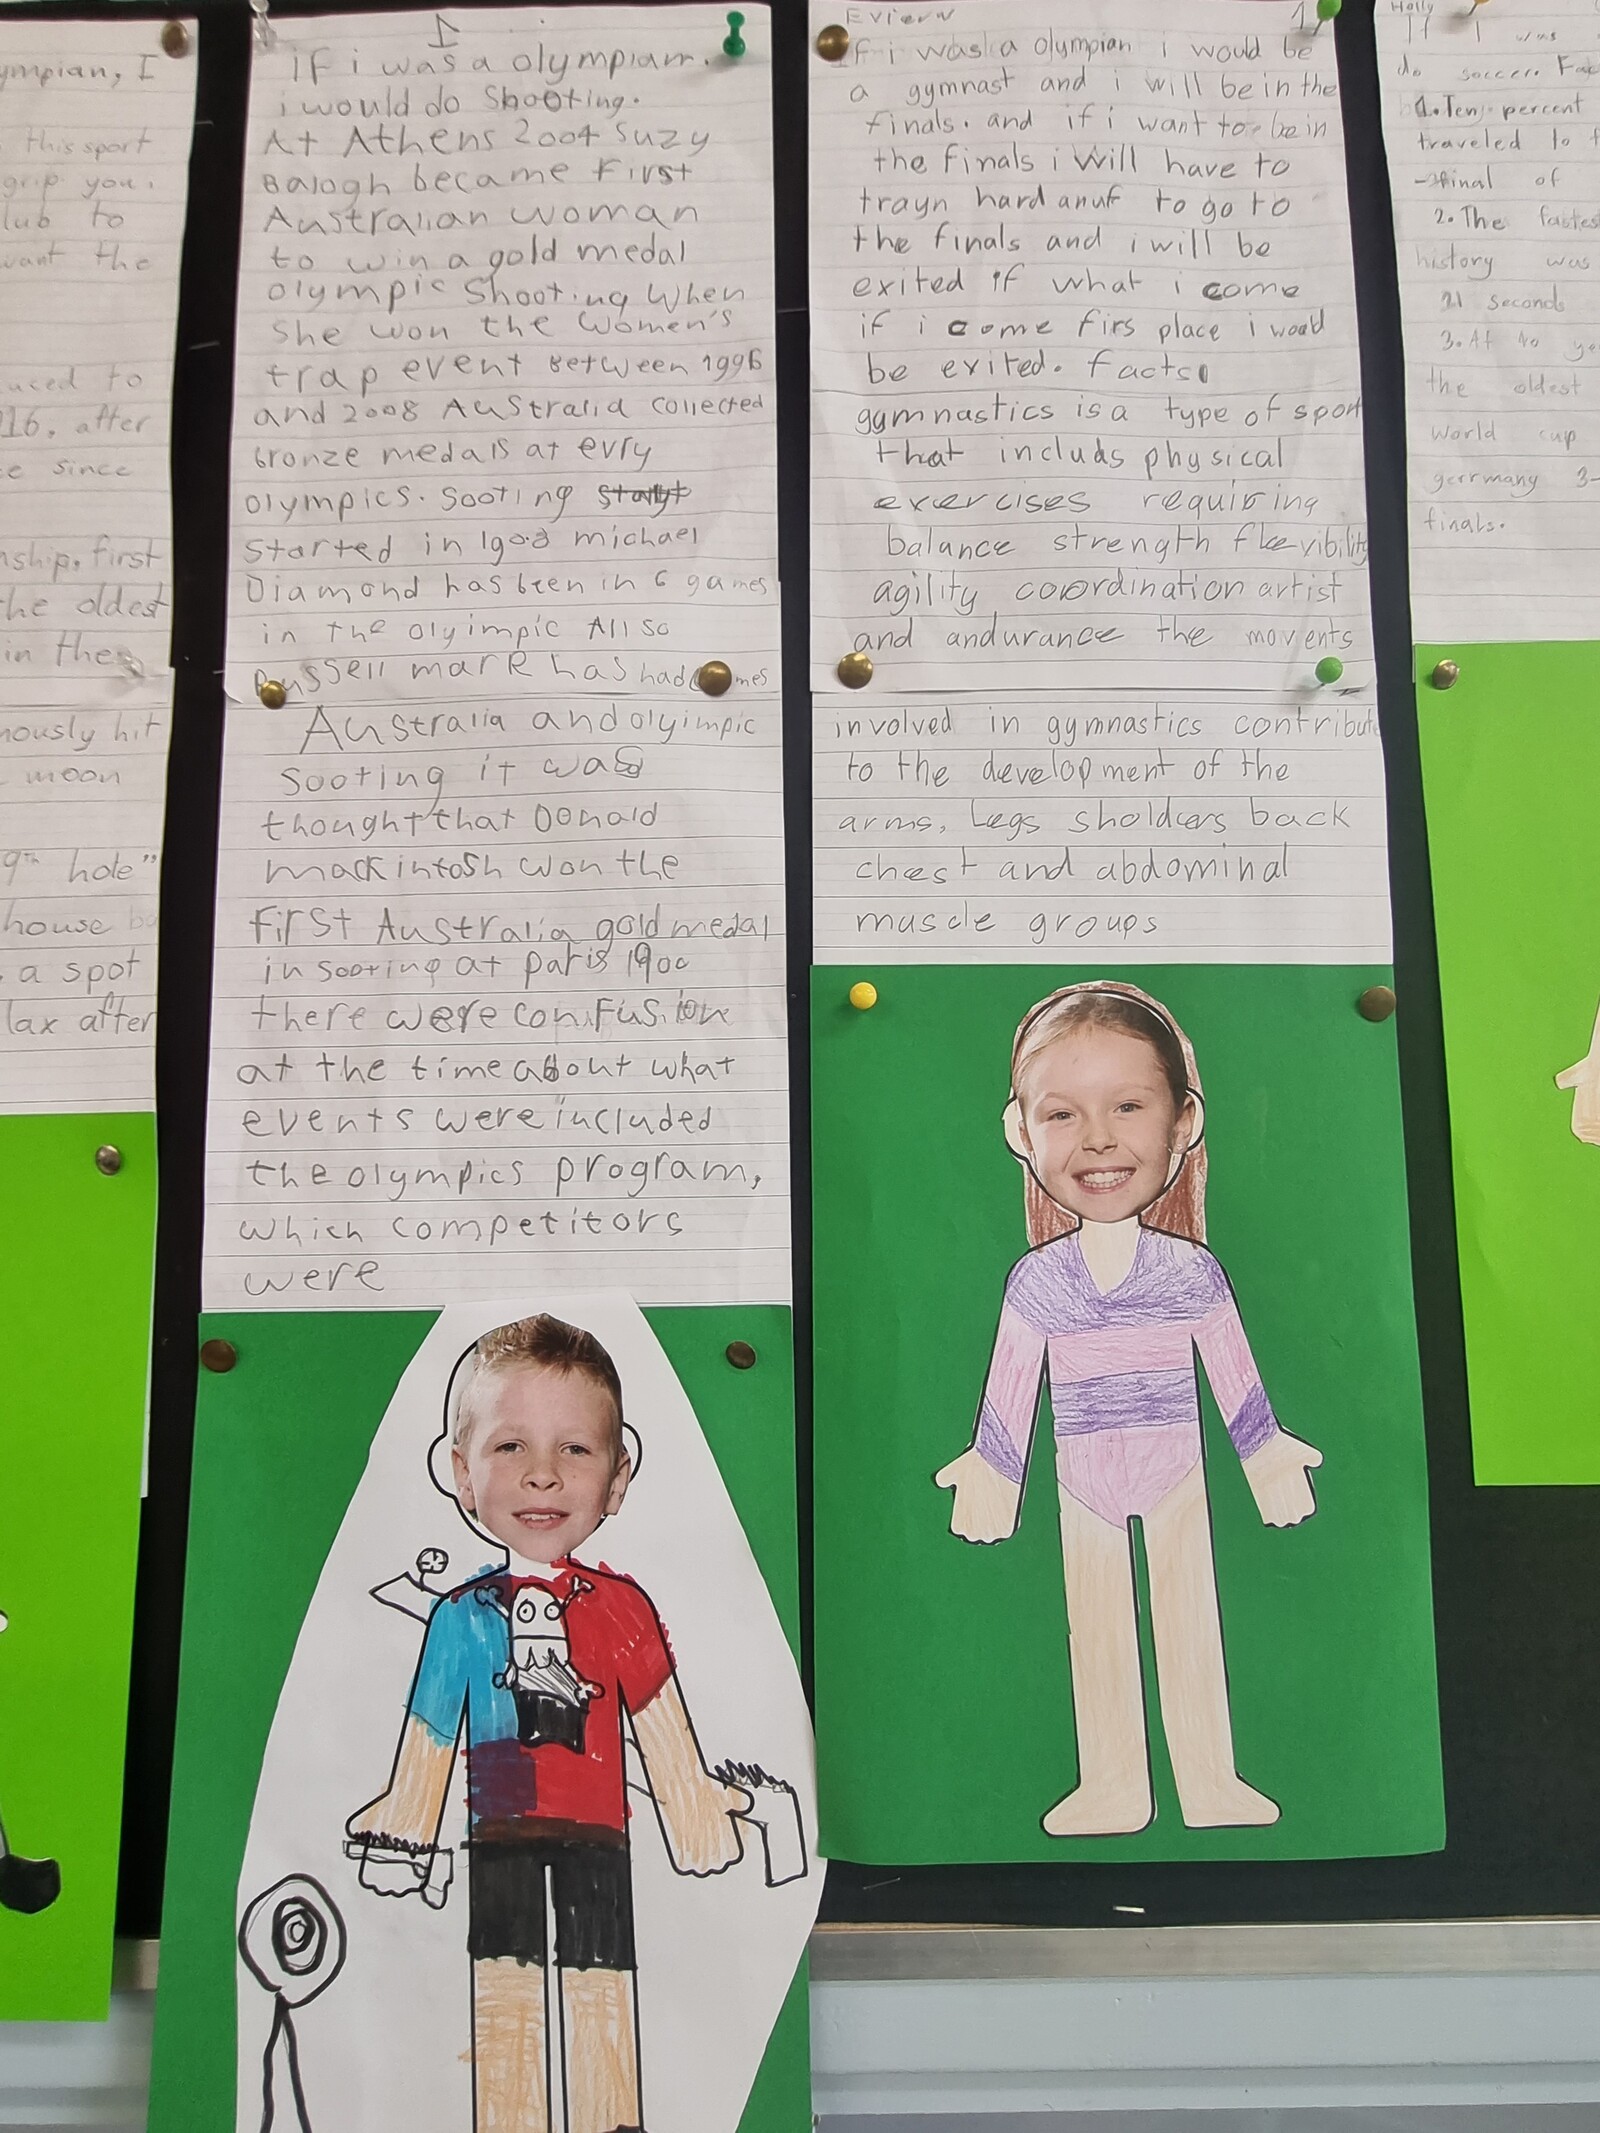 ympian, I
this sport
grip you.
lub to
want the
uced to
16. after
e since
nship. first
the oldest
in the
mously hit
moon
9th hole"
house
a spot
lax after
1
if i was a olympian.
i would do Shooting.
At Athens 2004 Suzy
Balogh became First
Australian woman
to win a gold medal
olympic Shooting When
She won the Women's
trap event Between 1996
and 2008 Australia collected
bronze medals at evry
olympics. Sooting
Started in michael
Diamond has been in 6 games
in the olyimpic All so
Russell mark has had
Australia and olyimpic
Sooting it was
thought that Donald
mackintosh won the
First Australia gold medal
in Sooting at paris 1900
there were confusion
at the time about what
events were included
the olympics program,
which competitors
were
Eviern 1
If i was a olympian i would be
a gymnast and i will be in the
finals. and if i want to be in
the finals i Will have to
trayn hard anuf to go to
the finals and i will be
exited if what i come
if i come firs place i woud
be exited. facts
gymnastics is a type of sport
that includs physical
exercises requiring
balance strength flexvibility
agility coordination artist
and andurance the movents
involved in gymnastics contribute
to the development of the
arms, Legs sholders back
chest and abdominal
muscle groups
Holly
If I was
do soccer. Fac
1. Ten percent
traveled to
final of
2. The fastes
history was
21 seconds
3. At 40 ye
the oldest
World cup
gerrmany 3-
finals.